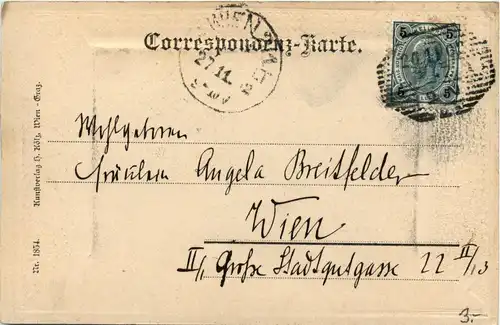 Correspondenz-Karte.
WIEN
27.11.
5
5
5
5
Wohlgeboren
Fräulein Angela Breitfelder
Wien
II/1 Große Stadtgutgasse 22 II/13
3.-
Nr. 1854. Kunstverlag H. Kölz, Wien - Graz.